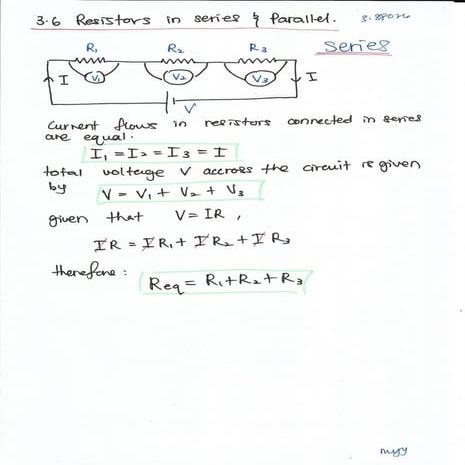 3.6 Resistors in series & Parallel.
R1 R2 R3
series
I V1 V2 V3 I
V
Current flows in resistors connected in series
are equal.
I1 = I2 = I3 = I
total voltage V accross the circuit is given
by
V = V1 + V2 + V3
given that V = IR ,
IR = IR1 + IR2 + IR3
therefore :
Req = R1 + R2 + R3
myy